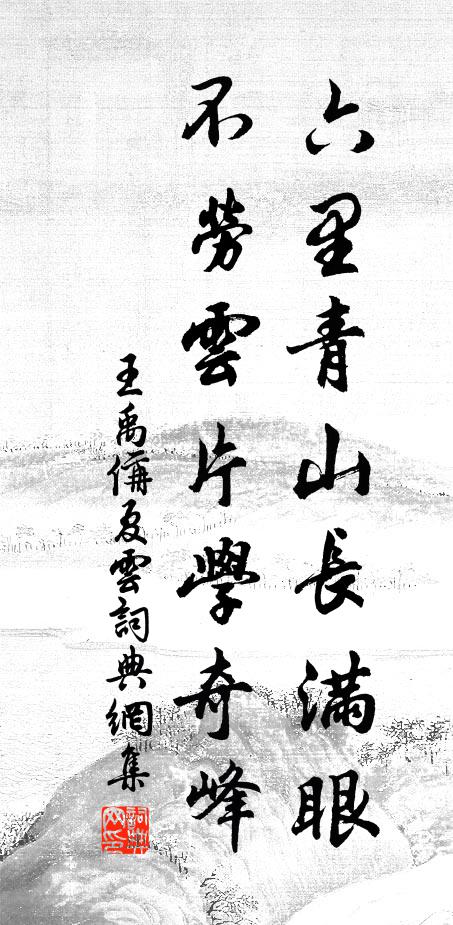 六里青山長滿眼
不勞雲片學奇峰
王禹偁夏雲詞典網集